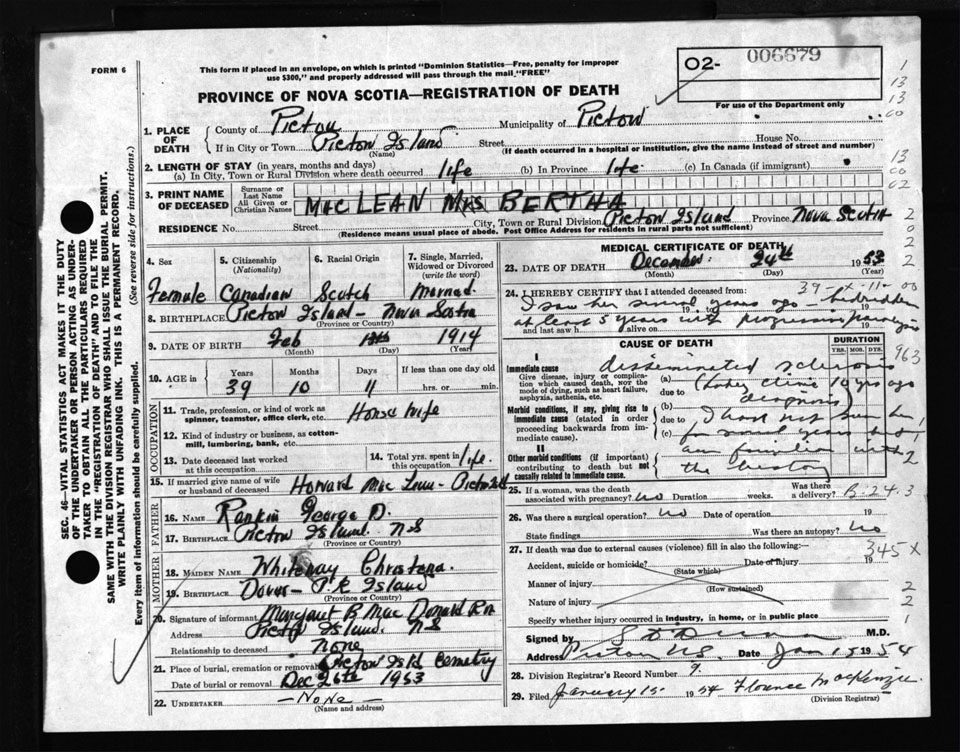 FORM 6
This form if placed in an envelope, on which is printed "Dominion Statistics—Free, penalty for improper
use $300," and properly addressed will pass through the mail "FREE"
PROVINCE OF NOVA SCOTIA—REGISTRATION OF DEATH
O2- 006679
For use of the Department only
1. PLACE OF DEATH
County of Pictou Municipality of Pictou
If in City or Town Pictou Island Street House No.
(Name) (If death occurred in a hospital or institution, give the name instead of street and number)
2. LENGTH OF STAY (in years, months and days)
(a) In City, Town or Rural Division where death occurred life (b) In Province life (c) In Canada (if immigrant)
3. PRINT NAME OF DECEASED
Surname or Last Name
All Given or Christian Names
MAC LEAN Mrs BERTHA
RESIDENCE No. Street City, Town or Rural Division Pictou Island Province Nova Scotia
(Residence means usual place of abode. Post Office Address for residents in rural parts not sufficient)
4. Sex
Female
5. Citizenship (Nationality)
Canadian
6. Racial Origin
Scotch
7. Single, Married, Widowed or Divorced (write the word)
Married
8. BIRTHPLACE Pictou Island - Nova Scotia
(Province or Country)
9. DATE OF BIRTH Feb 13th 1914
(Month) (Day) (Year)
10. AGE in Years Months Days If less than one day old
39 10 11 hrs. or min.
OCCUPATION
11. Trade, profession, or kind of work as spinner, teamster, office clerk, etc. House wife
12. Kind of industry or business, as cotton-mill, lumbering, bank, etc.
13. Date deceased last worked at this occupation
14. Total yrs. spent in this occupation life.
15. If married give name of wife or husband of deceased Howard Mac Lean -
FATHER
16. NAME Rankin George D.
17. BIRTHPLACE Pictou Island. N S
(Province or Country)
MOTHER
18. MAIDEN NAME Whiteway Christena.
19. BIRTHPLACE Dover - P.E. Island
(Province or Country)
20. Signature of informant Margaret B Mac Donald R.N
Address Pictou Island. N S
Relationship to deceased None
21. Place of burial, cremation or removal Pictou Isld Cemetry
Date of burial or removal Dec 26th 1953
22. UNDERTAKER - None -
(Name and address)
MEDICAL CERTIFICATE OF DEATH
23. DATE OF DEATH December 24th 1953
(Month) (Day) (Year)
24. I HEREBY CERTIFY that I attended deceased from: 39-X-11-00
I saw her several years ago - bedridden
19 to 19
at least 5 years with progressive paralysis
and last saw h alive on 19
CAUSE OF DEATH
DURATION
YRS. MOS. DYS.
963
I
Immediate cause
Give disease, injury or complication which caused death, not the mode of dying, such as heart failure, asphyxia, asthenia, etc.
(a) disseminated sclerosis
due to (Lahey clinic 10 yrs ago
diagnosis)
Morbid conditions, if any, giving rise to immediate cause (stated in order proceeding backwards from immediate cause).
(b)
due to I have not seen her
(c) for several years but
II
Other morbid conditions (if important) contributing to death but not causally related to immediate cause.
am familiar with
the history
25. If a woman, was the death associated with pregnancy? no Duration weeks. Was there a delivery? B-24.3
26. Was there a surgical operation? No Date of operation 19
State findings Was there an autopsy? No
27. If death was due to external causes (violence) fill in also the following:—
345 X
Accident, suicide or homicide? Date of injury 19
(State which)
Manner of injury
(How sustained)
Nature of injury
Specify whether injury occurred in industry, in home, or in public place
Signed by M.D.
Address Pictou N.S. Date Jan 15 1954
28. Division Registrar's Record Number 9.
29. Filed January 15 1954 Florence MacKenzie.
(Division Registrar)
SEC. 46—VITAL STATISTICS ACT MAKES IT THE DUTY
OF THE UNDERTAKER OR PERSON ACTING AS UNDER-
TAKER TO OBTAIN ALL THE PARTICULARS REQUIRED
IN THE "REGISTRATION OF DEATH" AND TO FILE THE
SAME WITH THE DIVISION REGISTRAR WHO SHALL ISSUE THE BURIAL PERMIT.
WRITE PLAINLY WITH UNFADING INK. THIS IS A PERMANENT RECORD.
Every item of information should be carefully supplied. (See reverse side for instructions.)
1
13
13
00
13
00
02
2
0
2
2
2
2
2
1